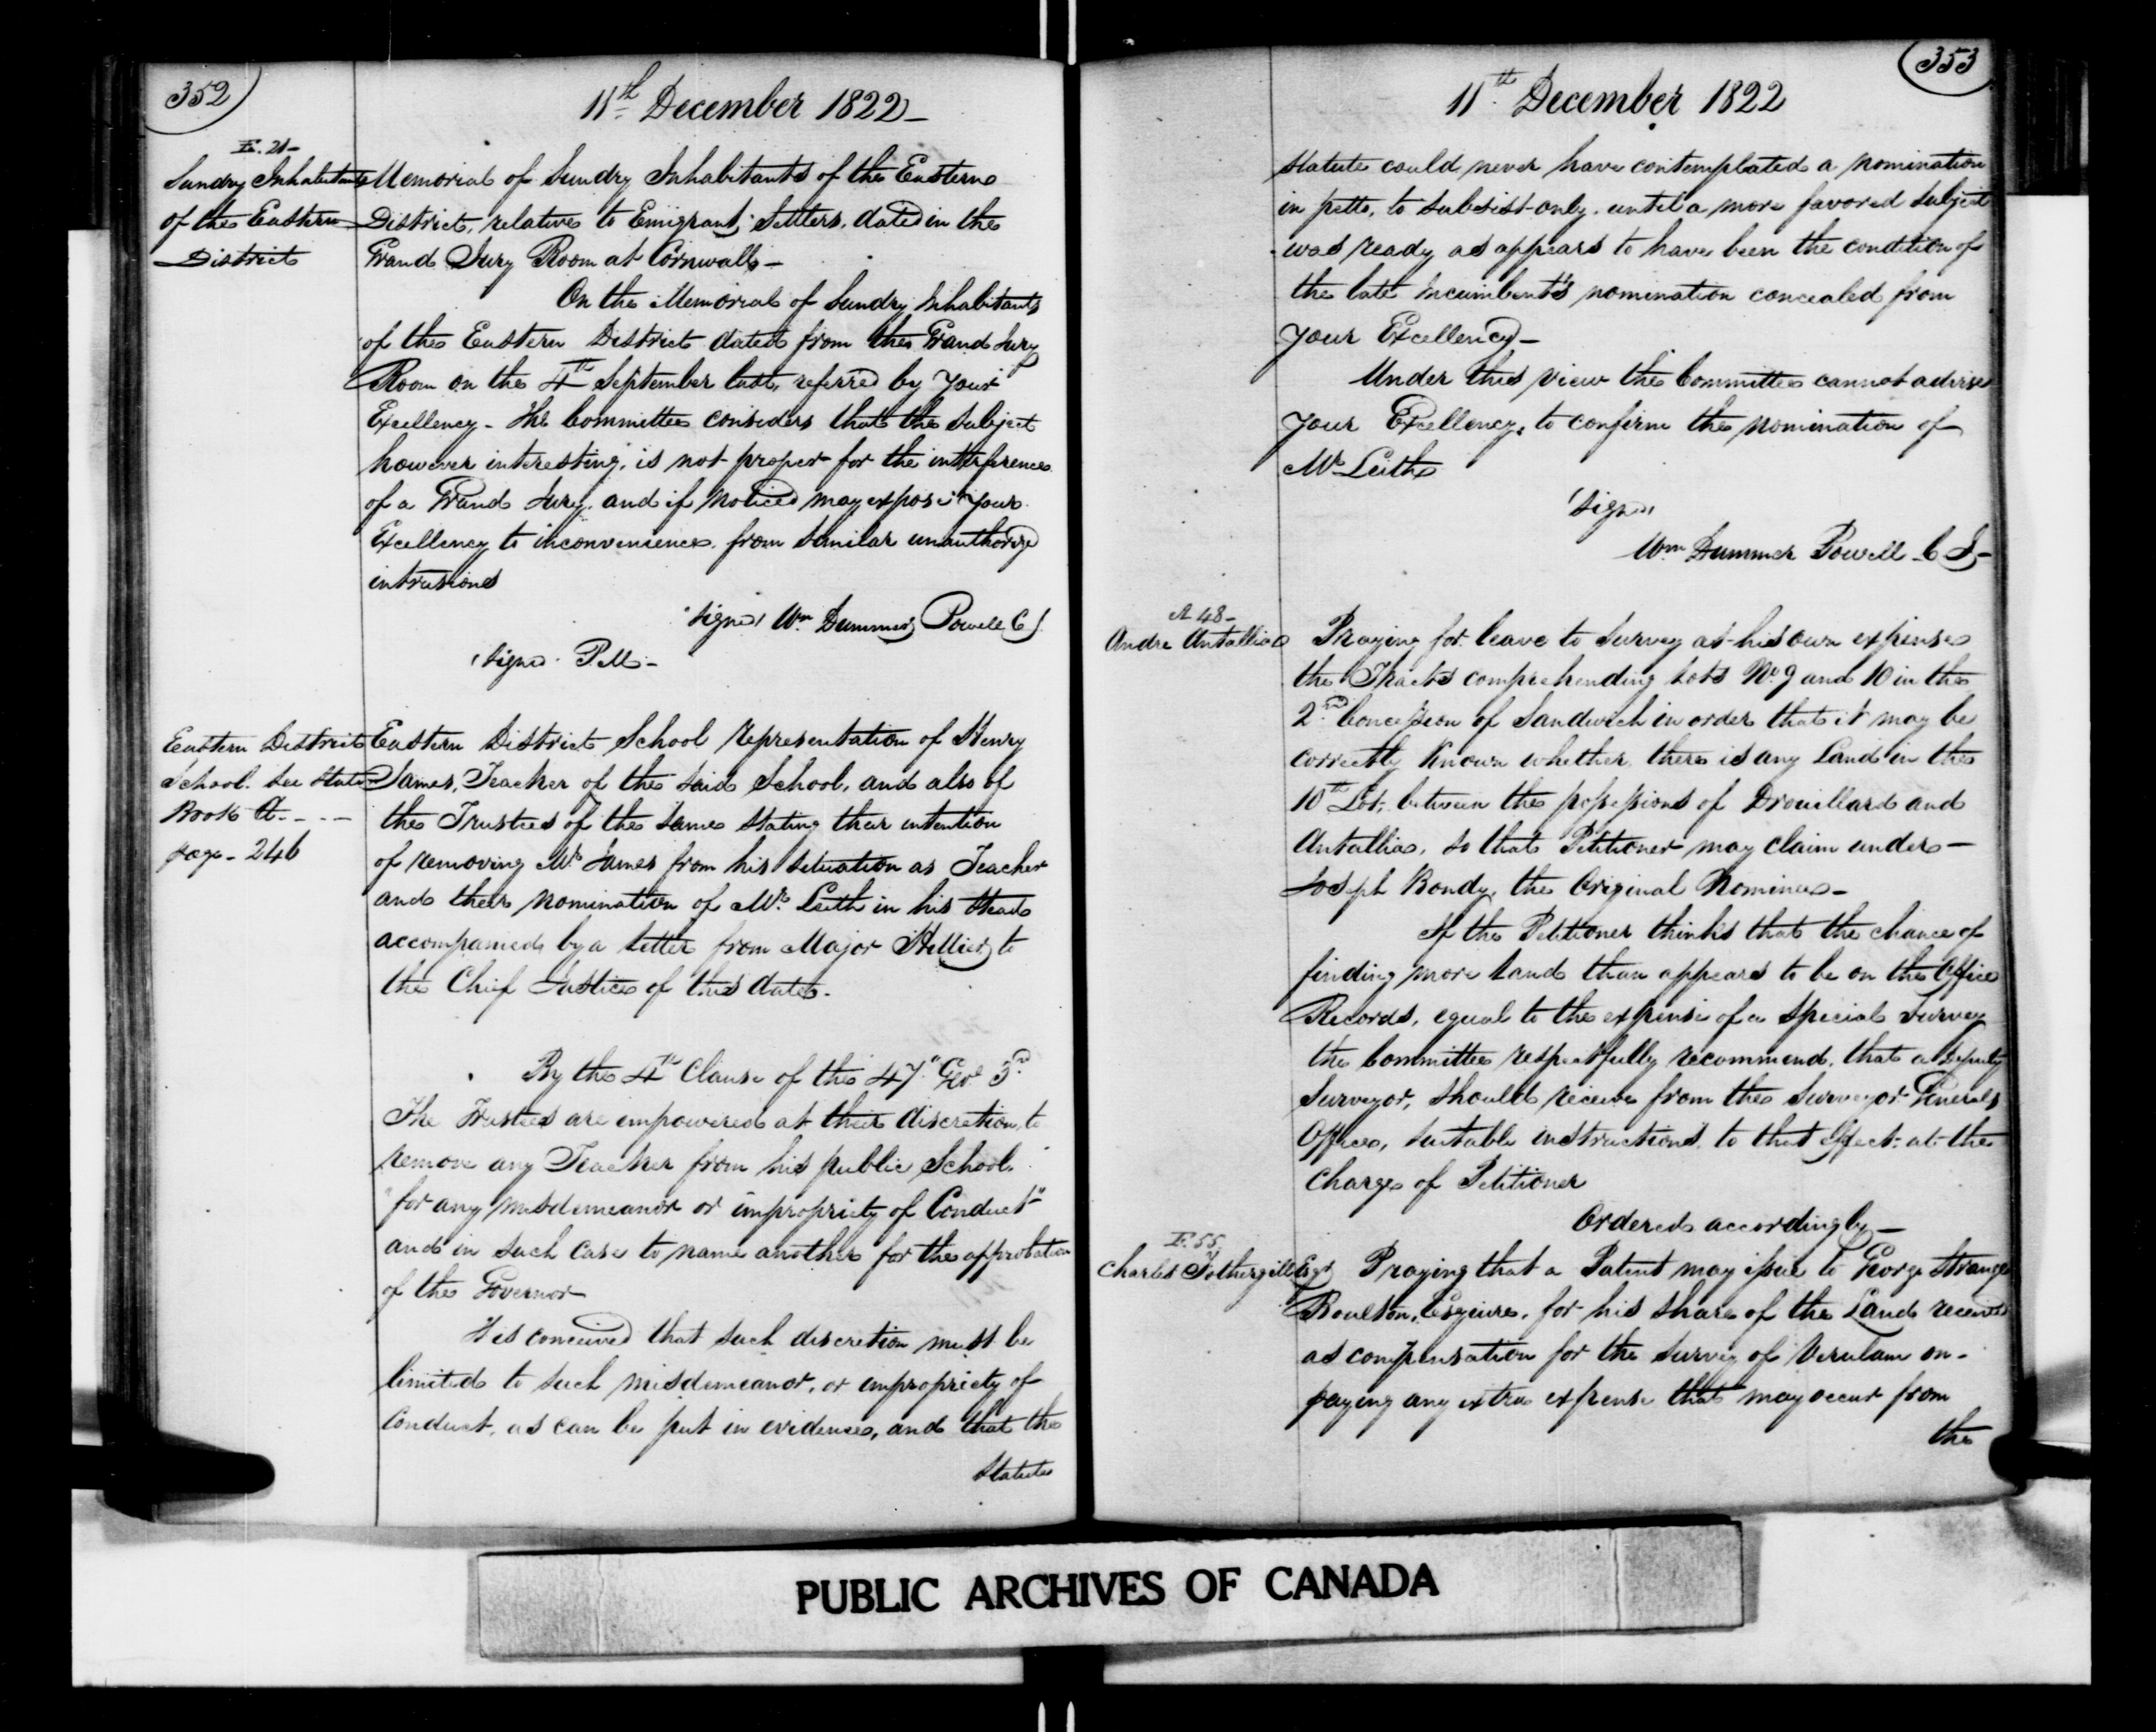 352
11th December 1822
E. 21
Sundry Inhabitants
of the Eastern
District
Memorial of Sundry Inhabitants of the Eastern
District, relative to Emigrant Settlers, dated in the
Grand Jury Room at Cornwall
On the Memorial of Sundry Inhabitants
of the Eastern District dated from the Grand Jury
Room on the 4th September last, referred by Your
Excellency - The Committee considers that the subject
however interesting, is not proper for the interference
of a Grand Jury, and if noticed may expose Your
Excellency to inconvenience, from similar unauthorized
intrusions
Signed Wm Dummer Powell C J
Signed P.M.
Eastern District
School. See State
Book A - - -
page - 246
Eastern District School representation of Henry
James, Teacher of the said School, and also of
the Trustees of the same stating their intention
of removing Mr James from his situation as Teacher
and their nomination of Mr Leith in his stead
accompanied by a letter from Major Hillier to
the Chief Justice of this date.
By the 4th Clause of the 47th Geo. 3rd
The Trustees are empowered at their discretion, to
remove any Teacher from his public School.
"for any misdemeanor or impropriety of Conduct"
and in such case to name another for the approbation
of the Governor
It is conceived that such discretion must be
limited to such misdemeanor, or impropriety of
Conduct, as can be put in evidence, and that the
Statute
353
11th December 1822
statute could never have contemplated a nomination
in petto, to subsist only until a more favored subject
was ready as appears to have been the condition of
the late Incumbent's nomination concealed from
Your Excellency
Under this view the Committee cannot advise
Your Excellency, to confirm the nomination of
Mr Leith
Signed
Wm Dummer Powell C J
A 48
Andre Antallia
Praying for leave to survey at his own expense
the Tracts comprehending Lots No. 9 and 10 in the
2nd Concession of Sandwich in order that it may be
correctly known whether there is any Land in the
10th Lot, between the possessions of Drouillard and
Antallia, so that Petitioner may claim under
Joseph Bondy, the Original Nominee
If the Petitioner thinks that the chance of
finding more land than appears to be on the Office
Records, equal to the expense of a special Survey
the Committee respectfully recommend, that a Deputy
Surveyor, should receive from the Surveyor Generals
Office, suitable instructions, to that effect, at the
Charge of Petitioner
Ordered accordingly
F. 55
Charles Fothergill Esqr
Praying that a Patent may issue to George Strange
Boulton, Esquire, for his share of the Land received
as compensation for the survey of Verulam on
paying any extra expense that may occur from
the
PUBLIC ARCHIVES OF CANADA